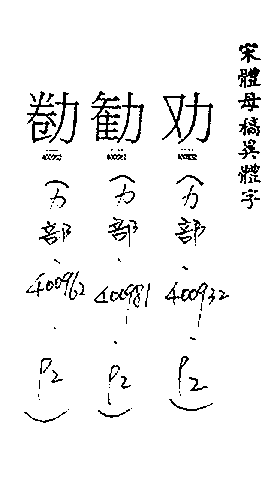 宋體母稿異體字
劝
400932
(力部.400932.P2)
勸
400981
(力部.400981.P2)
勌
400962
(力部.400962.P2)